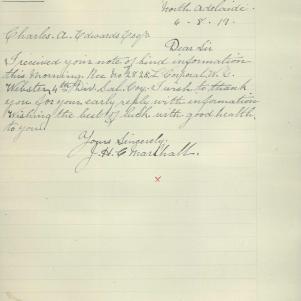 North Adelaide.
6-8-19.
Charles. A. Edwards Esq.
Dear Sir
I received your note of kind information
this morning. Nee No 2828. Corporal W. C.
Webster, 4th Sal. Coy. I wish to thank
you for your early reply with information
Wishing the best of luck with good health
to you.
Yours Sincerely.
J. H. C. Marshall.